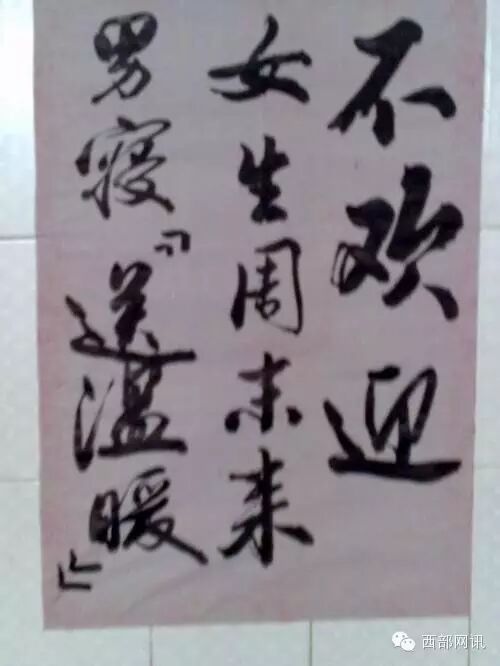 不欢迎
女生周末来
男寝『送温暖』
西部网讯